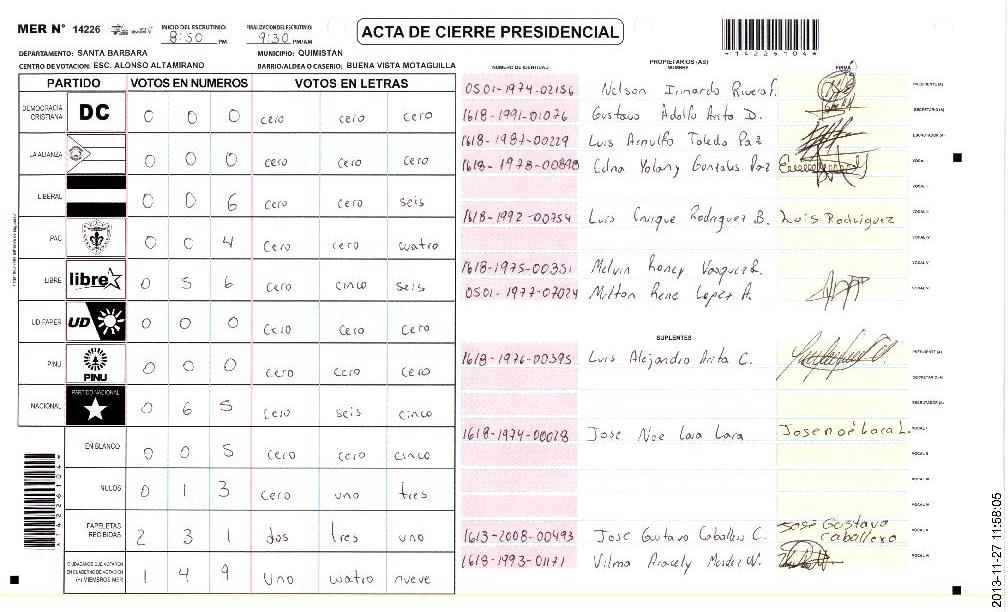 MER N° 14226
INICIO DEL ESCRUTINIO: 8:50 PM
FINALIZACION DEL ESCRUTINIO: 9:30 PM/AM
ACTA DE CIERRE PRESIDENCIAL
*14226104*
DEPARTAMENTO: SANTA BARBARA
MUNICIPIO: QUIMISTAN
CENTRO DE VOTACION: ESC. ALONSO ALTAMIRANO
BARRIO/ALDEA O CASERIO: BUENA VISTA MOTAGUILLA
PARTIDO VOTOS EN NUMEROS VOTOS EN LETRAS
DEMOCRACIA CRISTIANA DC 0 0 0 cero cero cero
LA ALIANZA 0 0 0 cero cero cero
LIBERAL 0 0 6 cero cero seis
PAC 0 0 4 cero cero cuatro
LIBRE libre 0 5 6 cero cinco seis
UD FAPER UD 0 0 0 cero cero cero
PINU PINU 0 0 0 cero cero cero
NACIONAL PARTIDO NACIONAL 0 6 5 cero seis cinco
EN BLANCO 0 0 5 cero cero cinco
NULOS 0 1 3 cero uno tres
PAPELETAS RECIBIDAS 2 3 1 dos tres uno
CIUDADANOS QUE VOTARON EN CUADERNO DE VOTACION (+) MIEMBROS MER 1 4 9 uno cuatro nueve
NUMERO DE IDENTIDAD
PROPIETARIOS (AS)
NOMBRE
FIRMA
0501-1974-02156 Nelson Irmardo Rivera F. PRESIDENTE (A)
1618-1991-01076 Gustavo Adolfo Arita D. SECRETARIO (A)
1618-1987-00229 Luis Arnulfo Toledo Paz ESCRUTADOR (A)
1618-1978-00898 Edna Yolany Gonzales Paz VOCAL I
VOCAL II
1618-1992-00754 Luis Enrique Rodriguez B. Luis Rodriguez VOCAL III
VOCAL IV
1618-1975-00351 Melvin Roney Vasquez R. VOCAL V
0501-1977-07024 Milton Rene Lopez A. VOCAL VI
SUPLENTES
1618-1976-00395 Luis Alejandro Arita C. PRESIDENTE (A)
SECRETARIO (A)
ESCRUTADOR (A)
1618-1974-00028 Jose Noe Lara Lara Jose noé Lara L. VOCAL I
VOCAL II
VOCAL III
VOCAL IV
1613-2008-00493 Jose Gustavo Caballero C. José Gustavo caballero VOCAL V
1618-1993-01171 Vilma Aracely VOCAL VI
2013-11-27 11:58:05